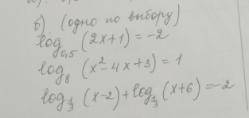 б) (одно по выбору)
log₀,₅ (2x+1) = -2
log₈ (x²-4x+3) = 1
log₁/₃ (x-2) + log₁/₃ (x+6) = -2